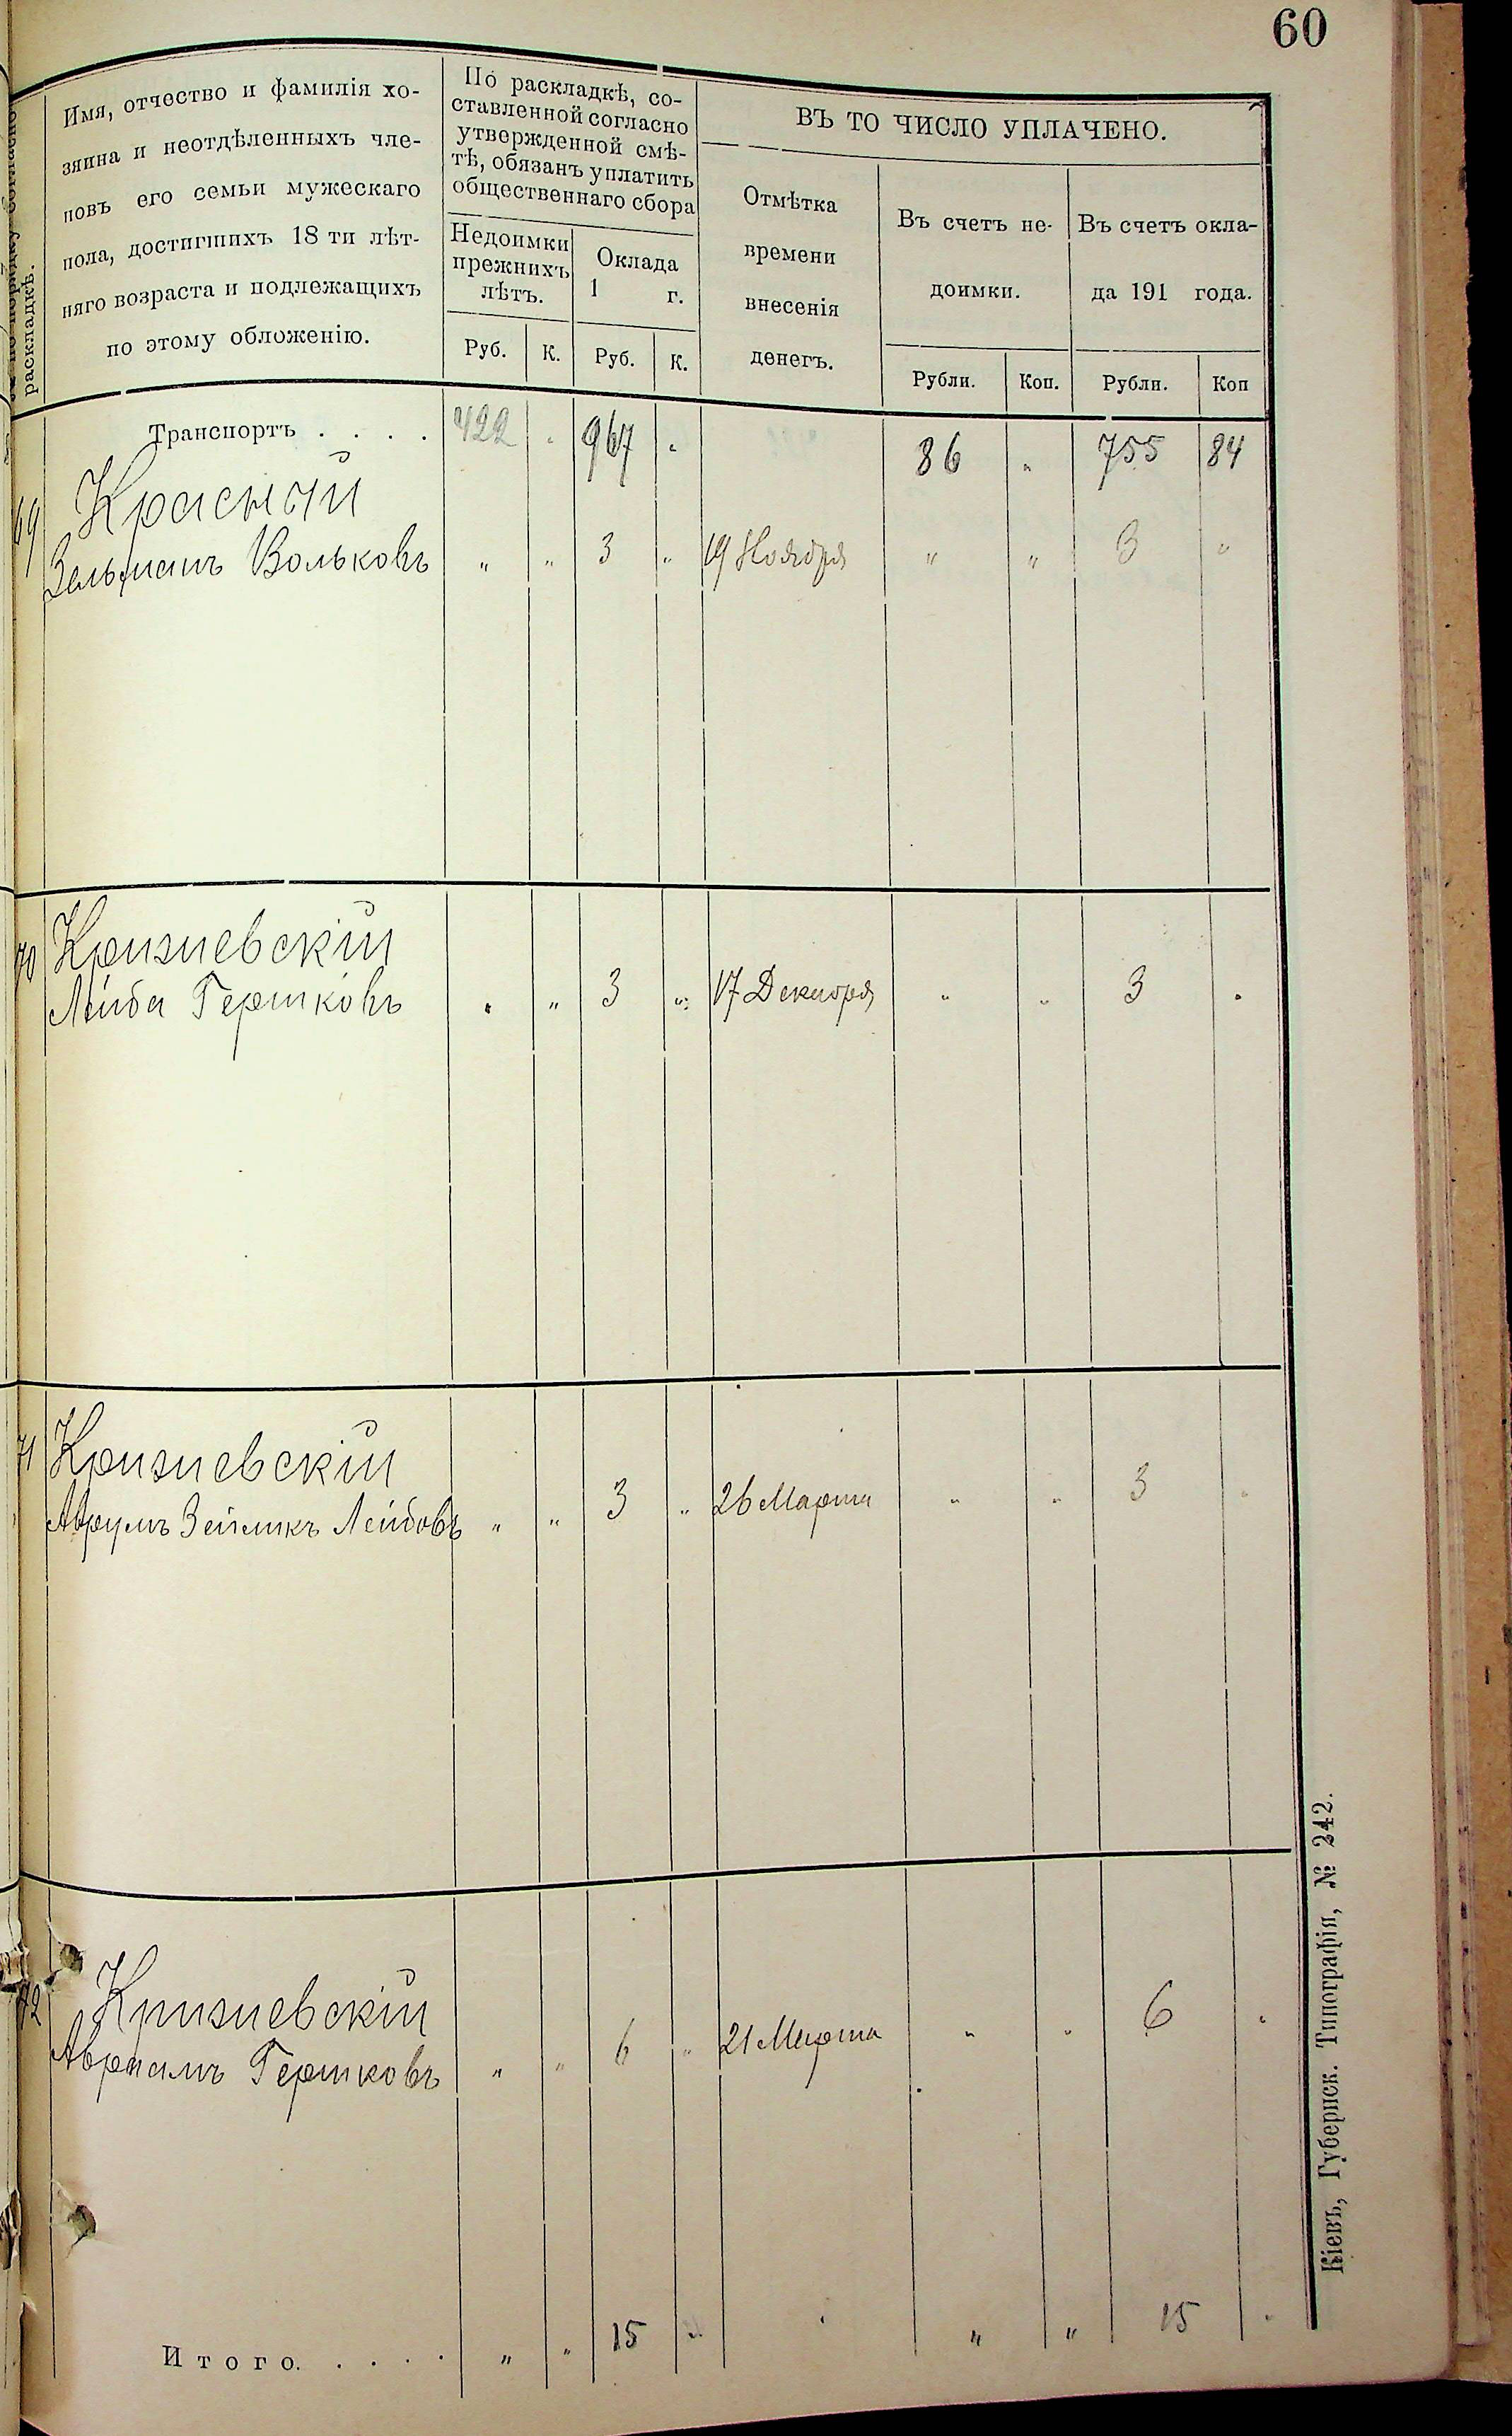 60
раскладкѣ.
Имя, отчество и фамилія хо-
зяина и неотдѣленныхъ чле-
новъ его семьи мужескаго
пола, достигшихъ 18 ти лѣт-
няго возраста и подлежащихъ
по этому обложенію.
По раскладкѣ, со-
ставленной согласно
утвержденной смѣ-
тѣ, обязанъ уплатить
общественнаго сбора
Недоимки
прежнихъ
лѣтъ.
Оклада
1 г.
Руб. К. Руб. К.
ВЪ ТО ЧИСЛО УПЛАЧЕНО.
Отмѣтка
времени
внесенія
денегъ.
Въ счетъ не-
доимки.
Въ счетъ окла-
да 191 года.
Рубли. Коп. Рубли. Коп
Транспортъ . . . . 422 „ 967 „ 86 „ 755 84
69 Красный
Зельманъ Вольковъ „ „ 3 „ 19 Ноября „ „ 3 „
70 Кризиевскій
Лейба Гершковъ „ „ 3 „ 17 Декабря „ „ 3 „
71 Кризиевскій
Аврумъ Зейликъ Лейбовъ „ „ 3 „ 26 Марта „ „ 3 „
72 Кризиевскій
Аврпамъ Гершковъ „ „ 6 „ 21 Марта „ „ 6 „
Итого. . . . . „ „ 15 „ „ „ 15 „
Кіевъ, Губернск. Типографія, № 242.